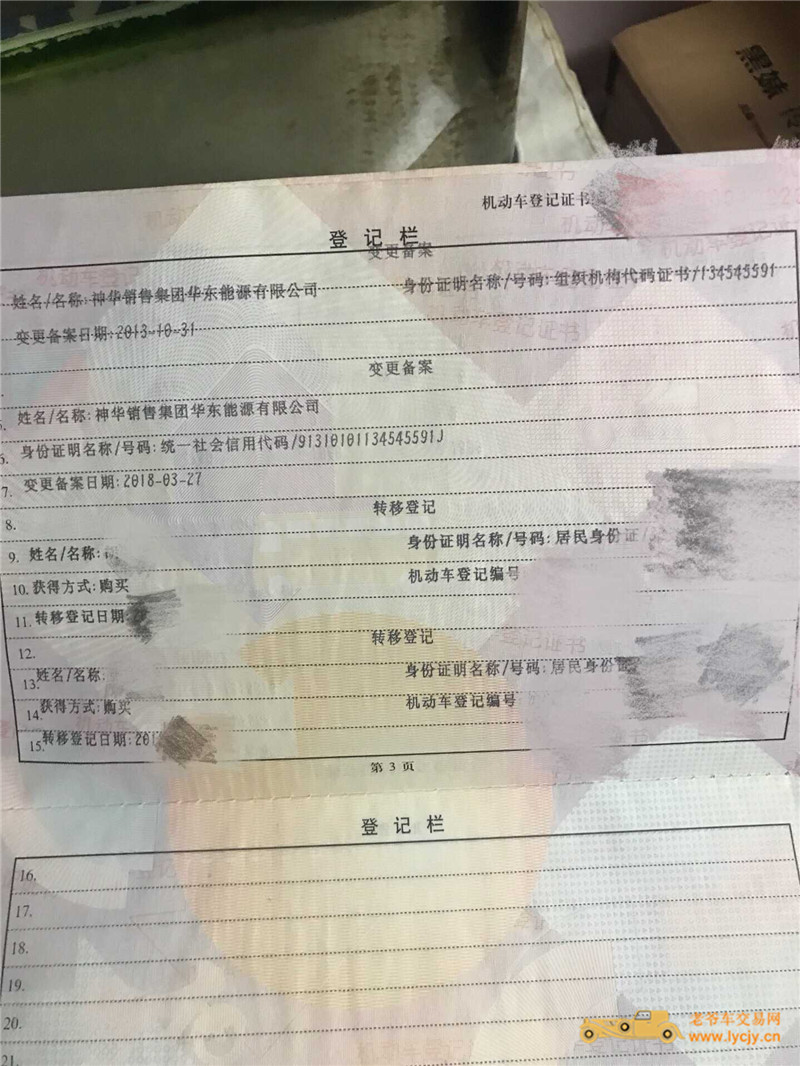 黑妹
机动车登记证书
登记栏
变更备案
姓名/名称:神华销售集团华东能源有限公司 身份证明名称/号码:组织机构代码证书/134545591
变更备案日期:2013-10-31
变更备案
姓名/名称:神华销售集团华东能源有限公司
6. 身份证明名称/号码:统一社会信用代码/91310101134545591J
7. 变更备案日期:2018-03-27
8. 转移登记
9. 姓名/名称: 身份证明名称/号码:居民身份证/
10. 获得方式:购买 机动车登记编号
11. 转移登记日期:
12. 转移登记
13. 姓名/名称: 身份证明名称/号码:居民身份证
14. 获得方式:购买 机动车登记编号
15. 转移登记日期:201
第 3 页
登记栏
16.
17.
18.
19.
20.
21.
老爷车交易网
www.lycjy.cn